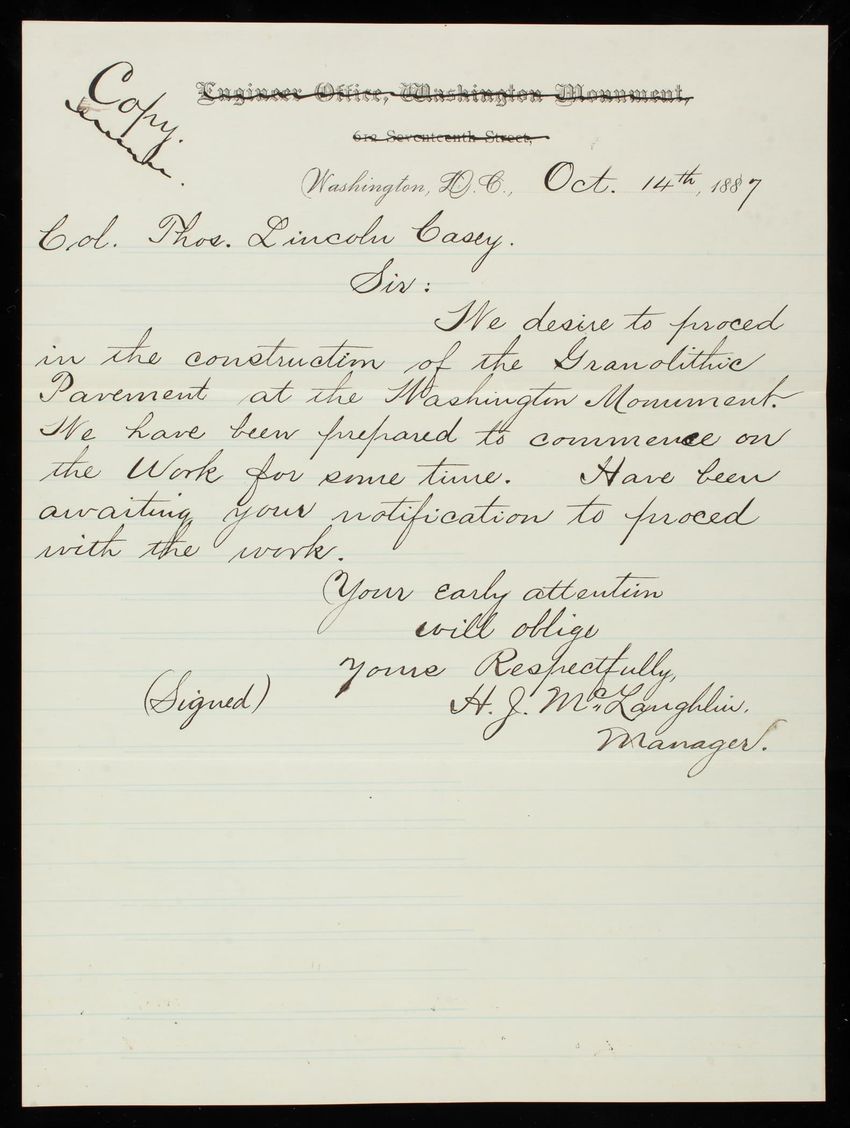 Copy.
Engineer Office, Washington Monument,
612 Seventeenth Street,
Washington, D.C., Oct. 14th, 1887
Col. Thos. Lincoln Casey.
Sir:
We desire to proced
in the construction of the Granolithic
Pavement at the Washington Monument.
We have been prepared to commence on
the Work for some time. Have been
awaiting your notification to proced
with the work.
Your early attention
will oblige
Yours Respectfully,
(Signed) H. J. McLaughlin.
Manager.